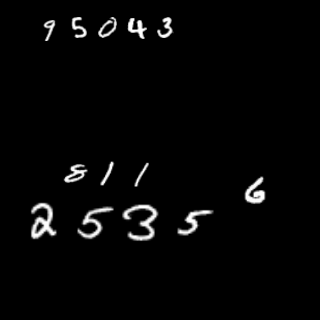 95043
811
6
2535